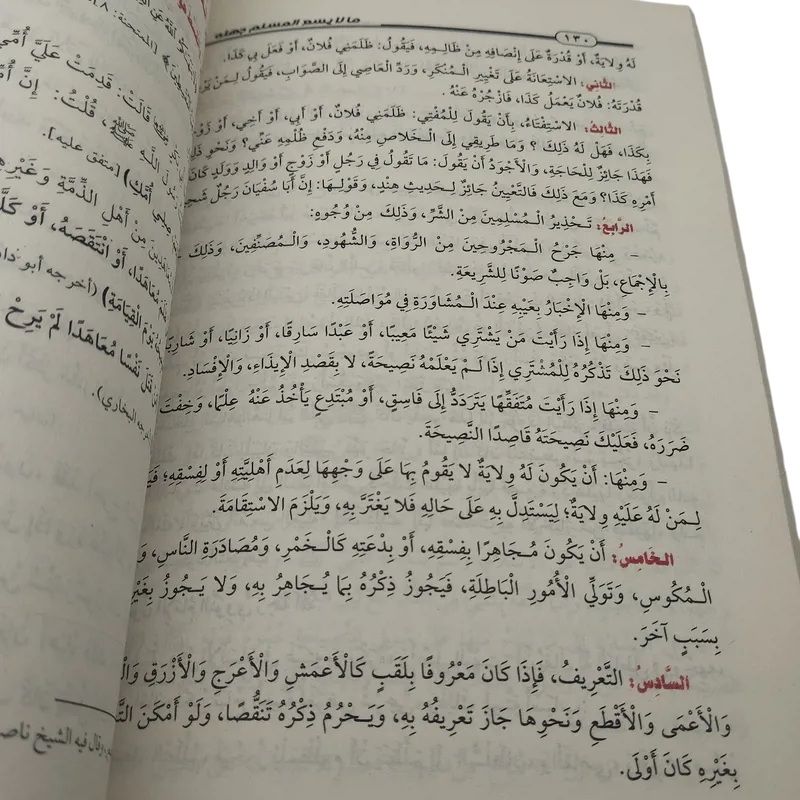 ١٣٠
ما لا يسع المسلم جهله
لَهُ وِلَايَةٌ، أَوْ قُدْرَةٌ عَلَى إِنْصَافِهِ مِنْ ظَالِمِهِ، فَيَقُولُ: ظَلَمَنِي فُلَانٌ، أَوْ فَعَلَ بِي كَذَا.
الثَّانِي: الاسْتِعَانَةُ عَلَى تَغْيِيرِ الْمُنْكَرِ، وَرَدِّ الْعَاصِي إِلَى الصَّوَابِ، فَيَقُولُ لِمَنْ
قُدْرَتَهُ: فُلَانٌ يَعْمَلُ كَذَا، فَازْجُرْهُ عَنْهُ.
الثَّالِثُ: الاسْتِفْتَاءُ، بِأَنْ يَقُولَ لِلْمُفْتِي: ظَلَمَنِي فُلَانٌ، أَوْ أَبِي، أَوْ أَخِي، أَوْ
بِكَذَا، فَهَلْ لَهُ ذَلِكَ؟ وَمَا طَرِيقِي إِلَى الْخَلَاصِ مِنْهُ، وَدَفْعِ ظُلْمِهِ عَنِّي؟ وَنَحْوَ
فَهَذَا جَائِزٌ لِلْحَاجَةِ، وَالْأَجْوَدُ أَنْ يَقُولَ: مَا تَقُولُ فِي رَجُلٍ أَوْ زَوْجٍ أَوْ وَالِدٍ وَوَلَدٍ كَانَ
أَمْرِهِ كَذَا؟ وَمَعَ ذَلِكَ فَالتَّعْيِينُ جَائِزٌ لِحَدِيثِ هِنْدٍ، وَقَوْلِهَا: إِنَّ أَبَا سُفْيَانَ رَجُلٌ
الرَّابِعُ: تَحْذِيرُ الْمُسْلِمِينَ مِنَ الشَّرِّ، وَذَلِكَ مِنْ وُجُوهٍ:
– مِنْهَا جَرْحُ الْمَجْرُوحِينَ مِنَ الرُّوَاةِ، وَالشُّهُودِ، وَالْمُصَنِّفِينَ، وَذَلِكَ
بِالْإِجْمَاعِ، بَلْ وَاجِبٌ صَوْنًا لِلشَّرِيعَةِ.
– وَمِنْهَا الْإِخْبَارُ بِعَيْبِهِ عِنْدَ الْمُشَاوَرَةِ فِي مُوَاصَلَتِهِ.
– وَمِنْهَا إِذَا رَأَيْتَ مَنْ يَشْتَرِي شَيْئًا مَعِيبًا، أَوْ عَبْدًا سَارِقًا، أَوْ زَانِيًا، أَوْ
نَحْوَ ذَلِكَ تَذْكُرُهُ لِلْمُشْتَرِي إِذَا لَمْ يَعْلَمْهُ نَصِيحَةً، لَا بِقَصْدِ الْإِيذَاءِ، وَالْإِفْسَادِ.
– وَمِنْهَا إِذَا رَأَيْتَ مُتَفَقِّهًا يَتَرَدَّدُ إِلَى فَاسِقٍ، أَوْ مُبْتَدِعٍ يَأْخُذُ عَنْهُ عِلْمًا، وَخِفْتَ
ضَرَرَهُ، فَعَلَيْكَ نَصِيحَتَهُ قَاصِدًا النَّصِيحَةَ.
– وَمِنْهَا: أَنْ يَكُونَ لَهُ وِلَايَةٌ لَا يَقُومُ بِهَا عَلَى وَجْهِهَا لِعَدَمِ أَهْلِيَّتِهِ أَوْ لِفِسْقِهِ؛
لِمَنْ لَهُ عَلَيْهِ وِلَايَةٌ؛ لِيَسْتَدِلَّ بِهِ عَلَى حَالِهِ فَلَا يَغْتَرَّ بِهِ، وَيَلْزَمَ الِاسْتِقَامَةَ.
الْخَامِسُ: أَنْ يَكُونَ مُجَاهِرًا بِفِسْقِهِ، أَوْ بِدْعَتِهِ كَالْخَمْرِ، وَمُصَادَرَةِ النَّاسِ،
الْمُكُوسِ، وَتَوَلِّي الْأُمُورِ الْبَاطِلَةِ، فَيَجُوزُ ذِكْرُهُ بِمَا يُجَاهِرُ بِهِ، وَلَا يَجُوزُ
بِسَبَبٍ آخَرَ.
السَّادِسُ: التَّعْرِيفُ، فَإِذَا كَانَ مَعْرُوفًا بِلَقَبٍ كَالْأَعْمَشِ وَالْأَعْرَجِ وَالْأَزْرَقِ
وَالْأَعْمَى وَالْأَقْطَعِ وَنَحْوِهَا جَازَ تَعْرِيفُهُ بِهِ، وَيَحْرُمُ ذِكْرُهُ تَنَقُّصًا، وَلَوْ أَمْكَنَ
بِغَيْرِهِ كَانَ أَوْلَى.
قَالَتْ: قَدِمَتْ عَلَيَّ
قُلْتُ: إِنَّ
[متفق عليه].
مِنْ أَهْلِ الذِّمَّةِ وَغَيْرِ
مُعَاهَدًا، أَوْ انْتَقَصَهُ، أَوْ
يَوْمَ الْقِيَامَةِ) (أخرجه أبو
نَفْسًا مُعَاهَدًا لَمْ يَرِحْ
البخاري).
وقال فيه الشيخ